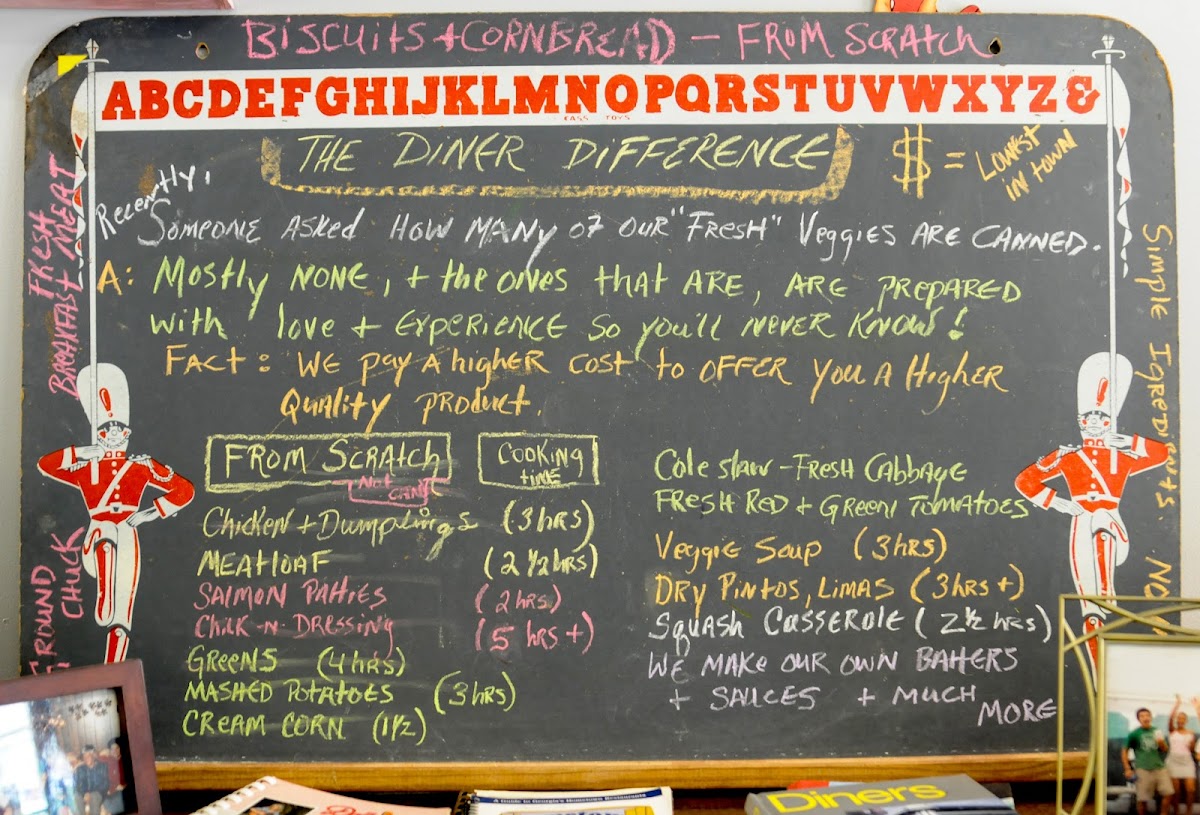 BISCUITS + CORNBREAD — FROM SCRATCH
ABCDEFGHIJKLMNOPQRSTUVWXYZ&
CASS TOYS
THE DINER DIFFERENCE
$ = LOWEST
IN TOWN
Recently,
SOMEONE ASKED HOW MANY OF OUR "FRESH" VEGGIES ARE CANNED.
A: MOSTLY NONE, + the ONES that ARE, ARE PREPARED
With love + EXPERIENCE SO you'll NEVER KNOW!
FACT: WE PAY A higher COST to OFFER YOU A HigHER
QuALity PRODUCT.
FROM SCRATCH
NOT CANS
COOKING
tiME
Chicken + Dumplings (3 hrs)
MEATLOAF (2 1/2 hrs)
SALMON PAttiES (2 hrs)
Chick-n-DRESSiNg (5 hrs+)
GREENS (4 hrs)
MASHED POTATOES (3 hrs)
CREAM CORN (1 1/2)
Cole slaw - FRESH CABBAGE
FRESH RED + GREEN TOMATOES
VEggiE SOUP (3 hrs)
DRY PINTOS, LIMAS (3 hrs +)
SquASH CASSEROLE (2 1/2 hrs)
WE MAKE OUR OWN BAttERS
+ SAUCES + MUCH
MORE
FRESH
BREAKFAST MEAT
GROUND
CHUCK
Simple Igredients. No
A Guide to Georgia's Hometown Restaurants
Diners